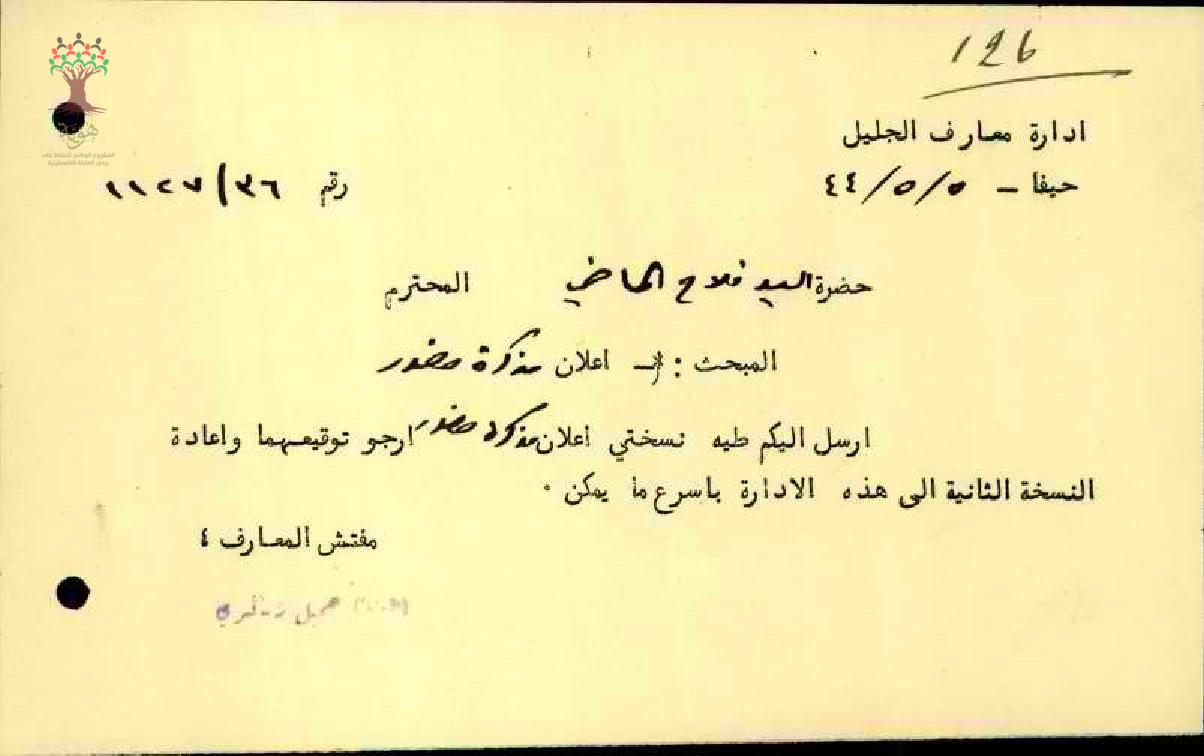 126
هوية
المشروع الوطني للحفاظ على
جذور العائلة الفلسطينية
ادارة معارف الجليل
حيفا - ٥/٥/٤٤
رقم ٣٦/١١٢٧
حضرة السيد فلاح الماضي المحترم
المبحث : - اعلان مذكرة حضور
ارسل اليكم طيه نسختي اعلان مذكرة حضور ارجو توقيعهما واعادة
النسخة الثانية الى هذه الادارة باسرع ما يمكن ٠
مفتش المعارف ٤
جميل